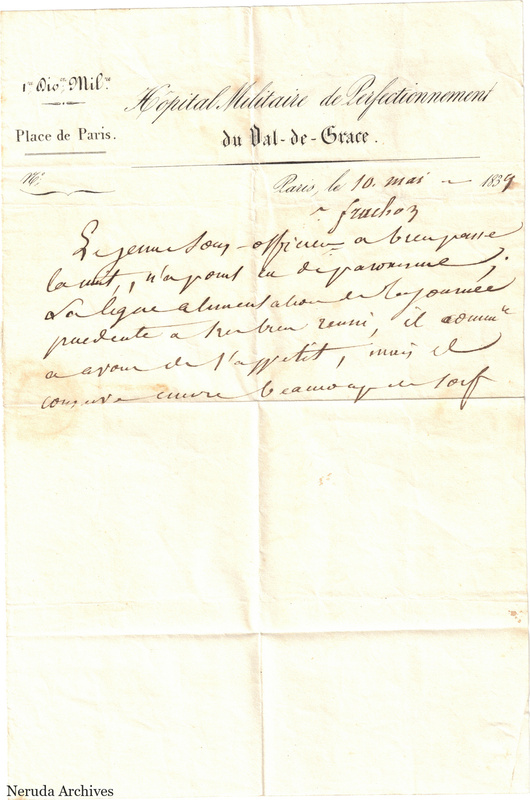 1re Divon Milre
Place de Paris.
No
Hôpital Militaire de Perfectionnement
du Val-de-Grace.
Paris, le 10 mai 1839
frachon
Le jeune Sous-officier a bien passé
la nuit, n'a point eu de paroxisme,
La légère alimentation de la journée
précédente a très bien réussi, il comme
a avoir de l'appétit, mais il
conserve encore beaucoup de soif
Neruda Archives